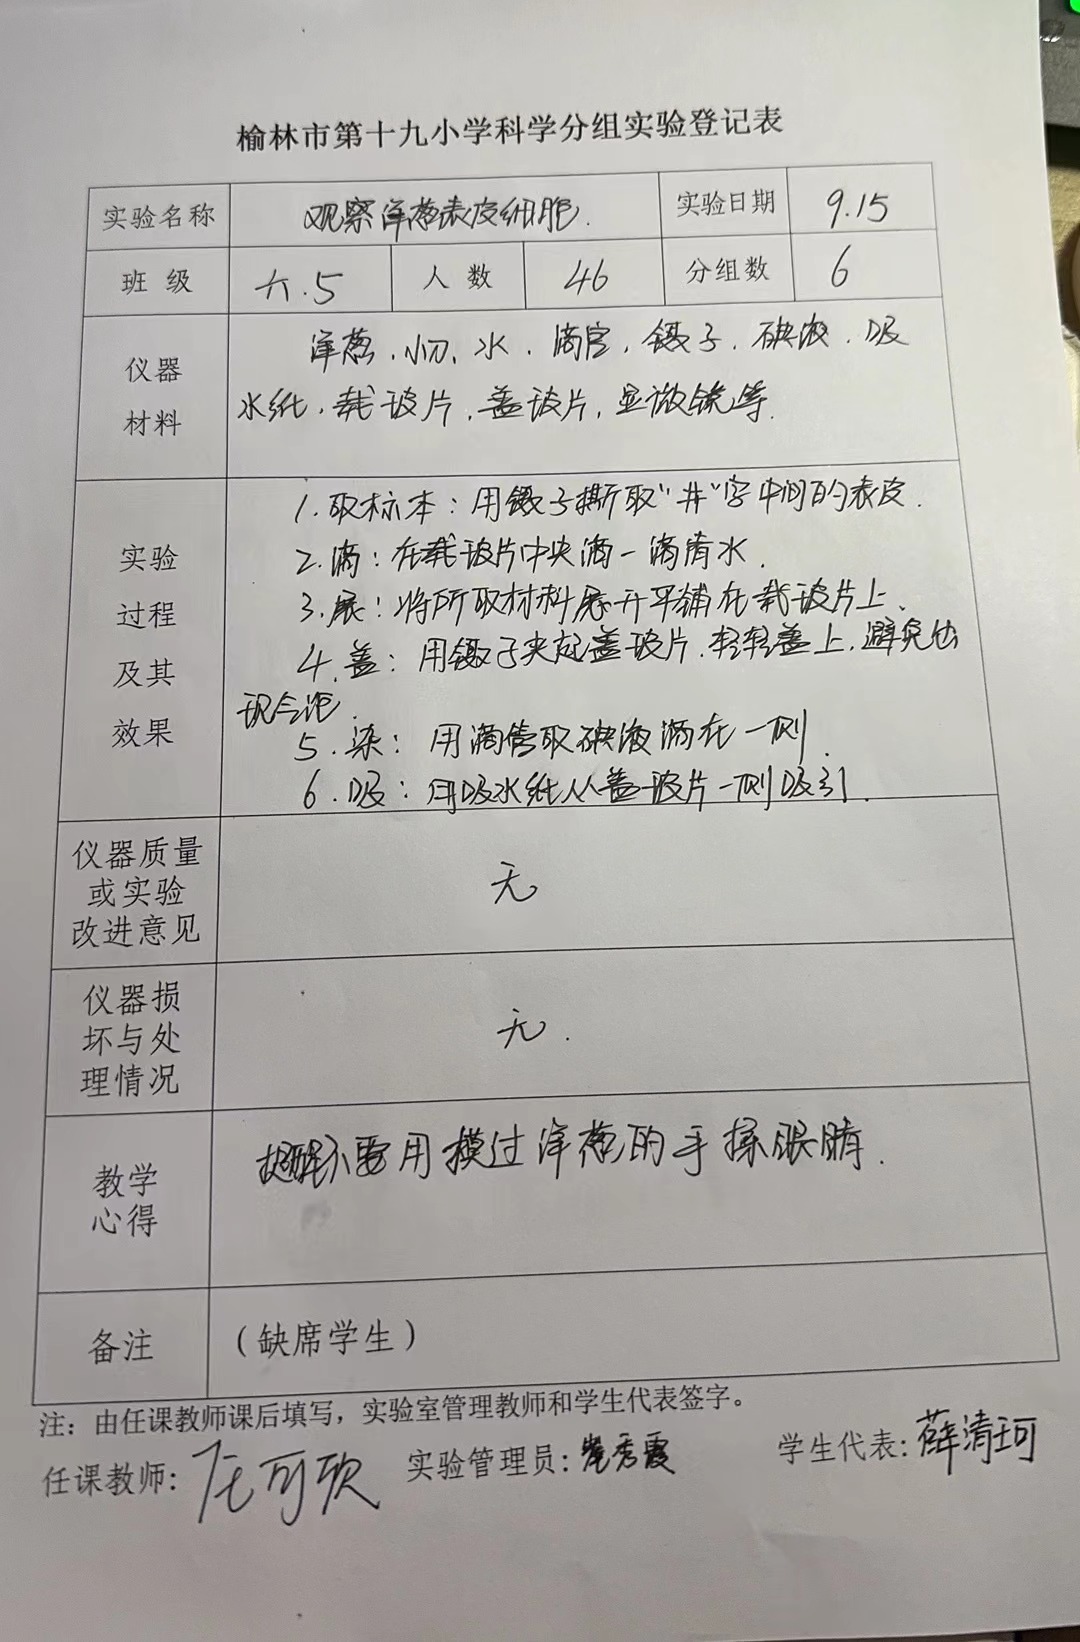 榆林市第十九小学科学分组实验登记表
实验名称 观察洋葱表皮细胞. 实验日期 9.15
班 级 六.5 人 数 46 分组数 6
仪器
材料
洋葱、小刀、水、滴管、镊子、碘液、吸
水纸、载玻片、盖玻片、显微镜等.
实验
过程
及其
效果
1.取标本:用镊子撕取"井"字中间的表皮.
2.滴:在载玻片中央滴一滴清水.
3.展:将所取材料展开平铺在载玻片上.
4.盖:用镊子夹起盖玻片,轻轻盖上,避免出
现气泡.
5.染:用滴管取碘液滴在一侧.
6.吸:用吸水纸从盖玻片一侧吸引.
仪器质量
或实验
改进意见
无
仪器损
坏与处
理情况
无.
教学
心得
提醒不要用摸过洋葱的手揉眼睛.
备注 (缺席学生)
注:由任课教师课后填写,实验室管理教师和学生代表签字。
任课教师: 可欣 实验管理员: 秀霞 学生代表: 薛清珂